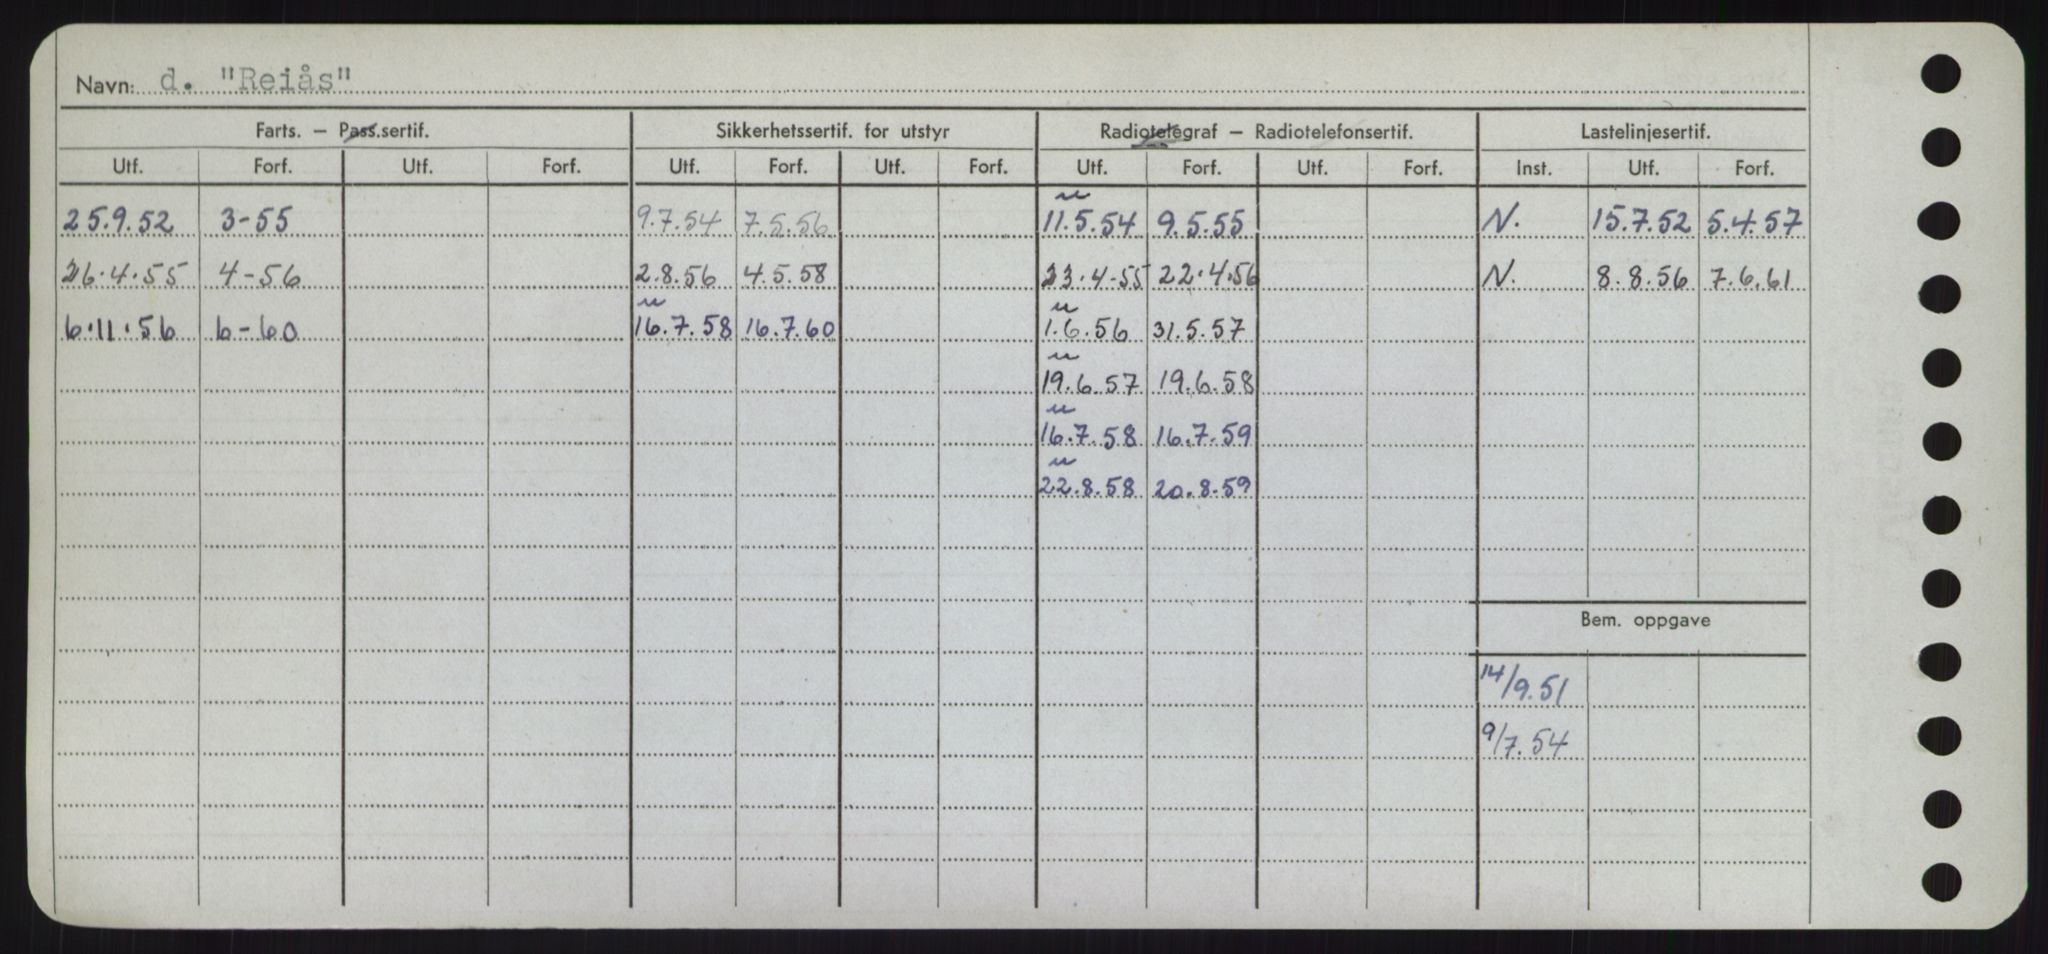 Navn: d. "Reiås"
Farts. – Pass.sertif. Sikkerhetssertif. for utstyr Radiotelegraf – Radiotelefonsertif. Lastelinjesertif.
Utf. Forf. Utf. Forf. Utf. Forf. Utf. Forf. Utf. Forf. Utf. Forf. Inst. Utf. Forf.
u
25.9.52 3-55 9.7.54 7.5.56 11.5.54 9.5.55 N. 15.7.52 5.4.57
26.4.55 4-56 2.8.56 4.5.58 23.4-55 22.4.56 N. 8.8.56 7.6.61
u u
6.11.56 6-60 16.7.58 16.7.60 1.6.56 31.5.57
u
19.6.57 19.6.58
u
16.7.58 16.7.59
u
22.8.58 20.8.59
Bem. oppgave
14/9.51
9/7.54